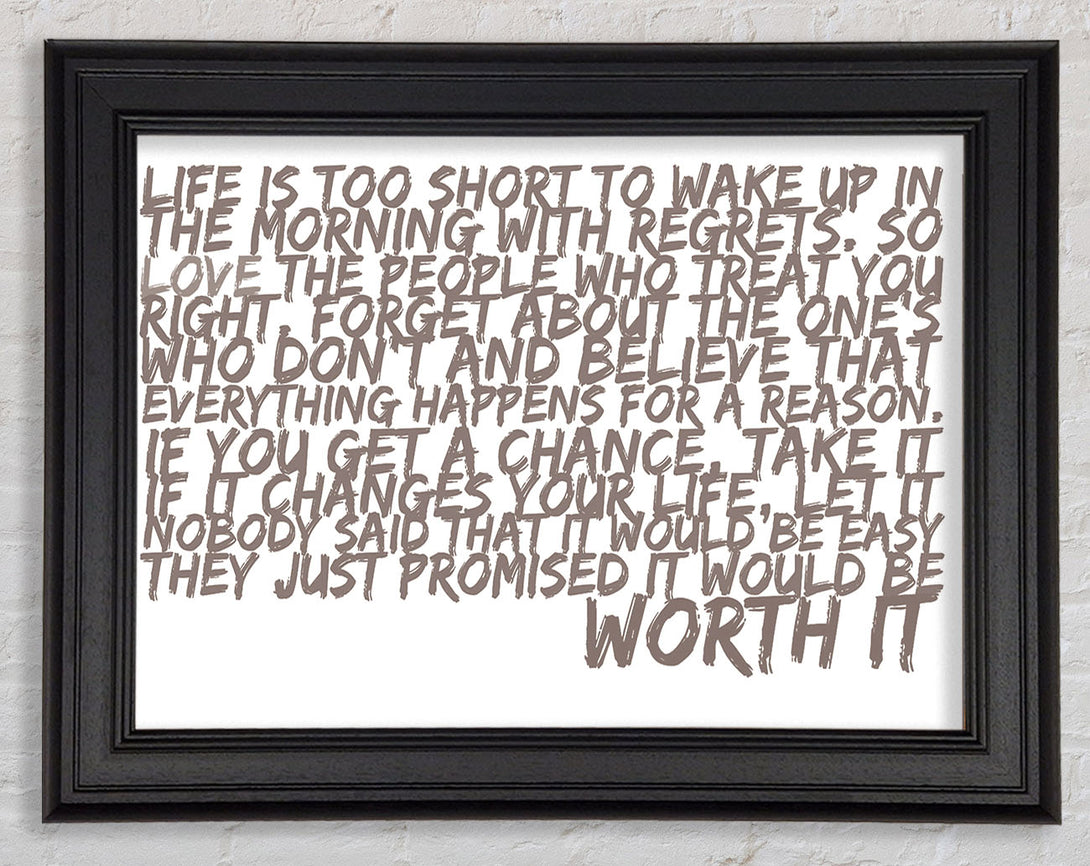 LIFE IS TOO SHORT TO WAKE UP IN
THE MORNING WITH REGRETS. SO
LOVE THE PEOPLE WHO TREAT YOU
RIGHT. FORGET ABOUT THE ONE'S
WHO DON'T AND BELIEVE THAT
EVERYTHING HAPPENS FOR A REASON.
IF YOU GET A CHANCE, TAKE IT
IF IT CHANGES YOUR LIFE, LET IT
NOBODY SAID THAT IT WOULD BE EASY
THEY JUST PROMISED IT WOULD BE
WORTH IT